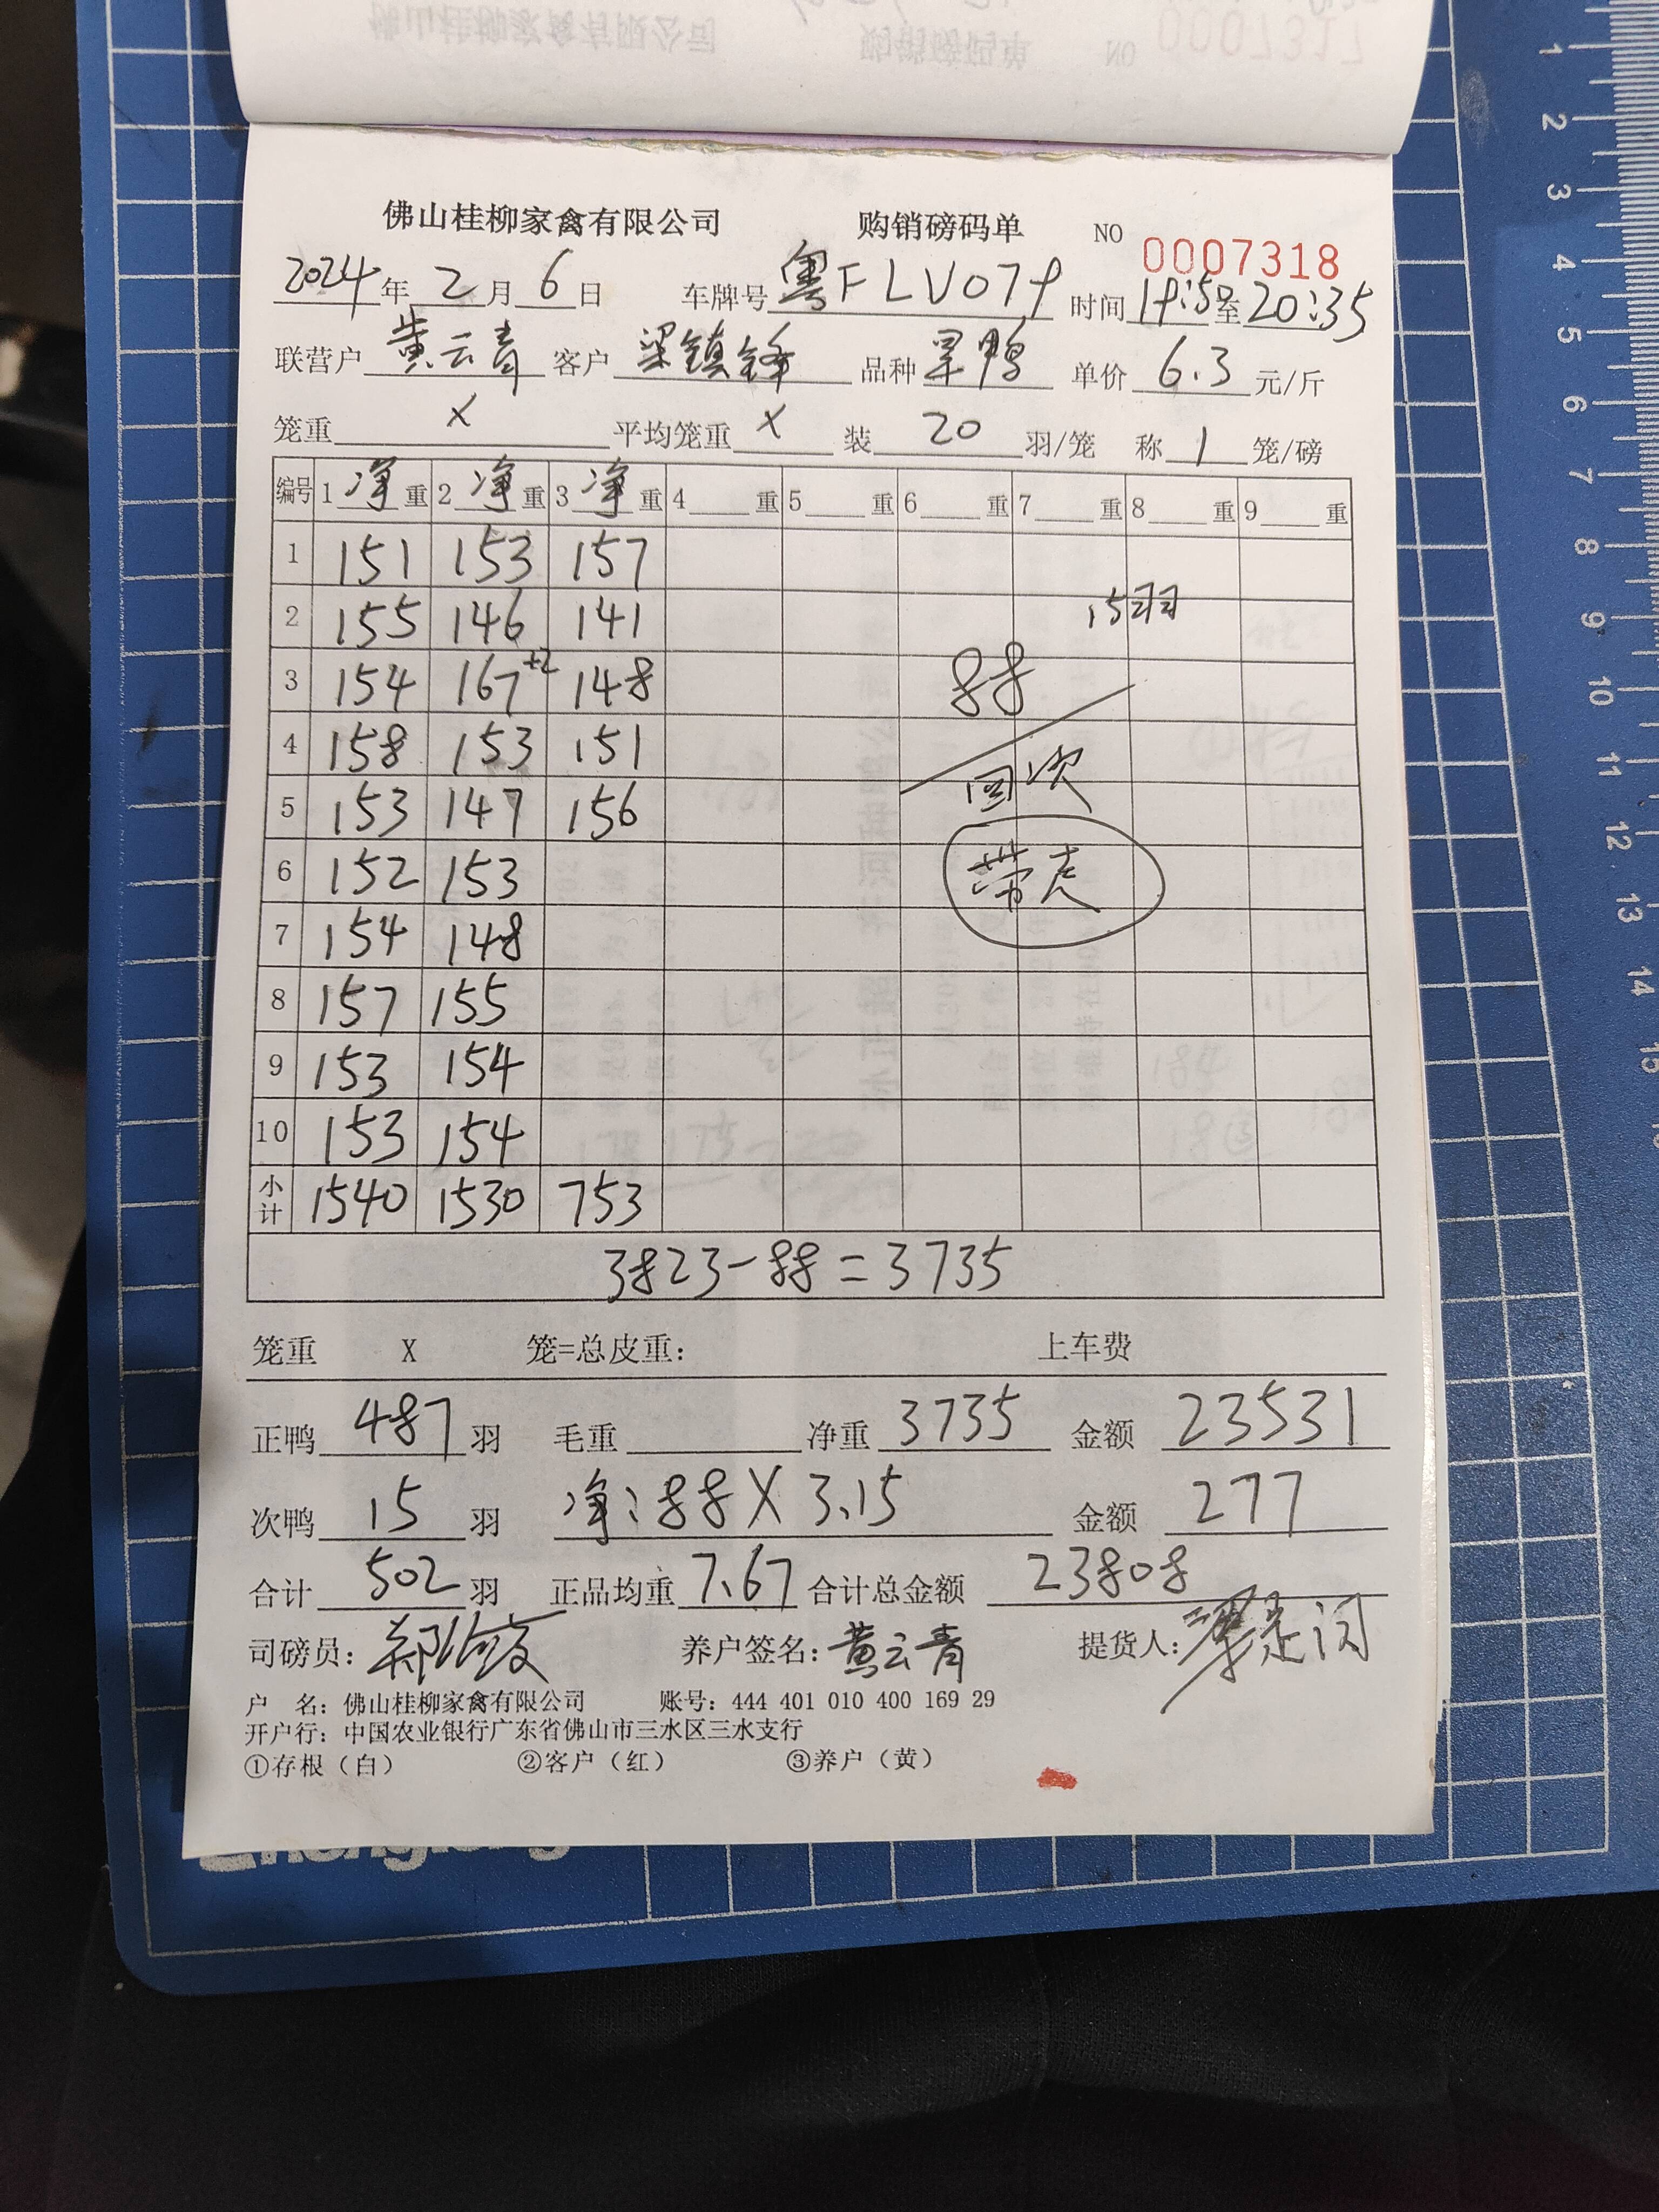 佛山桂柳家禽有限公司 购销磅码单 NO 0007318
2024年2月6日 车牌号粤FLV079 时间19:50至20:35
联营户黄云青 客户梁镇锋 品种 单价6.3元/斤
笼重X 平均笼重X 装20羽/笼 称1笼/磅
编号 1净重 2净重 3净重 4重 5重 6重 7重 8重 9重
1 151 153 157
2 155 146 141 15羽
3 154 167+2 148 88
4 158 153 151
5 153 147 156 回次
6 152 153 带走
7 154 148
8 157 155
9 153 154
10 153 154
小计 1540 1530 753
3823-88=3735
笼重 X 笼=总皮重: 上车费
正鸭487羽 毛重 净重3735 金额23531
次鸭15羽 净:88X3.15 金额277
合计502羽 正品均重7.67 合计总金额23808
司磅员: 养户签名:黄云青 提货人:
户 名: 佛山桂柳家禽有限公司 账号: 444 401 010 400 169 29
开户行: 中国农业银行广东省佛山市三水区三水支行
①存根（白） ②客户（红） ③养户（黄）